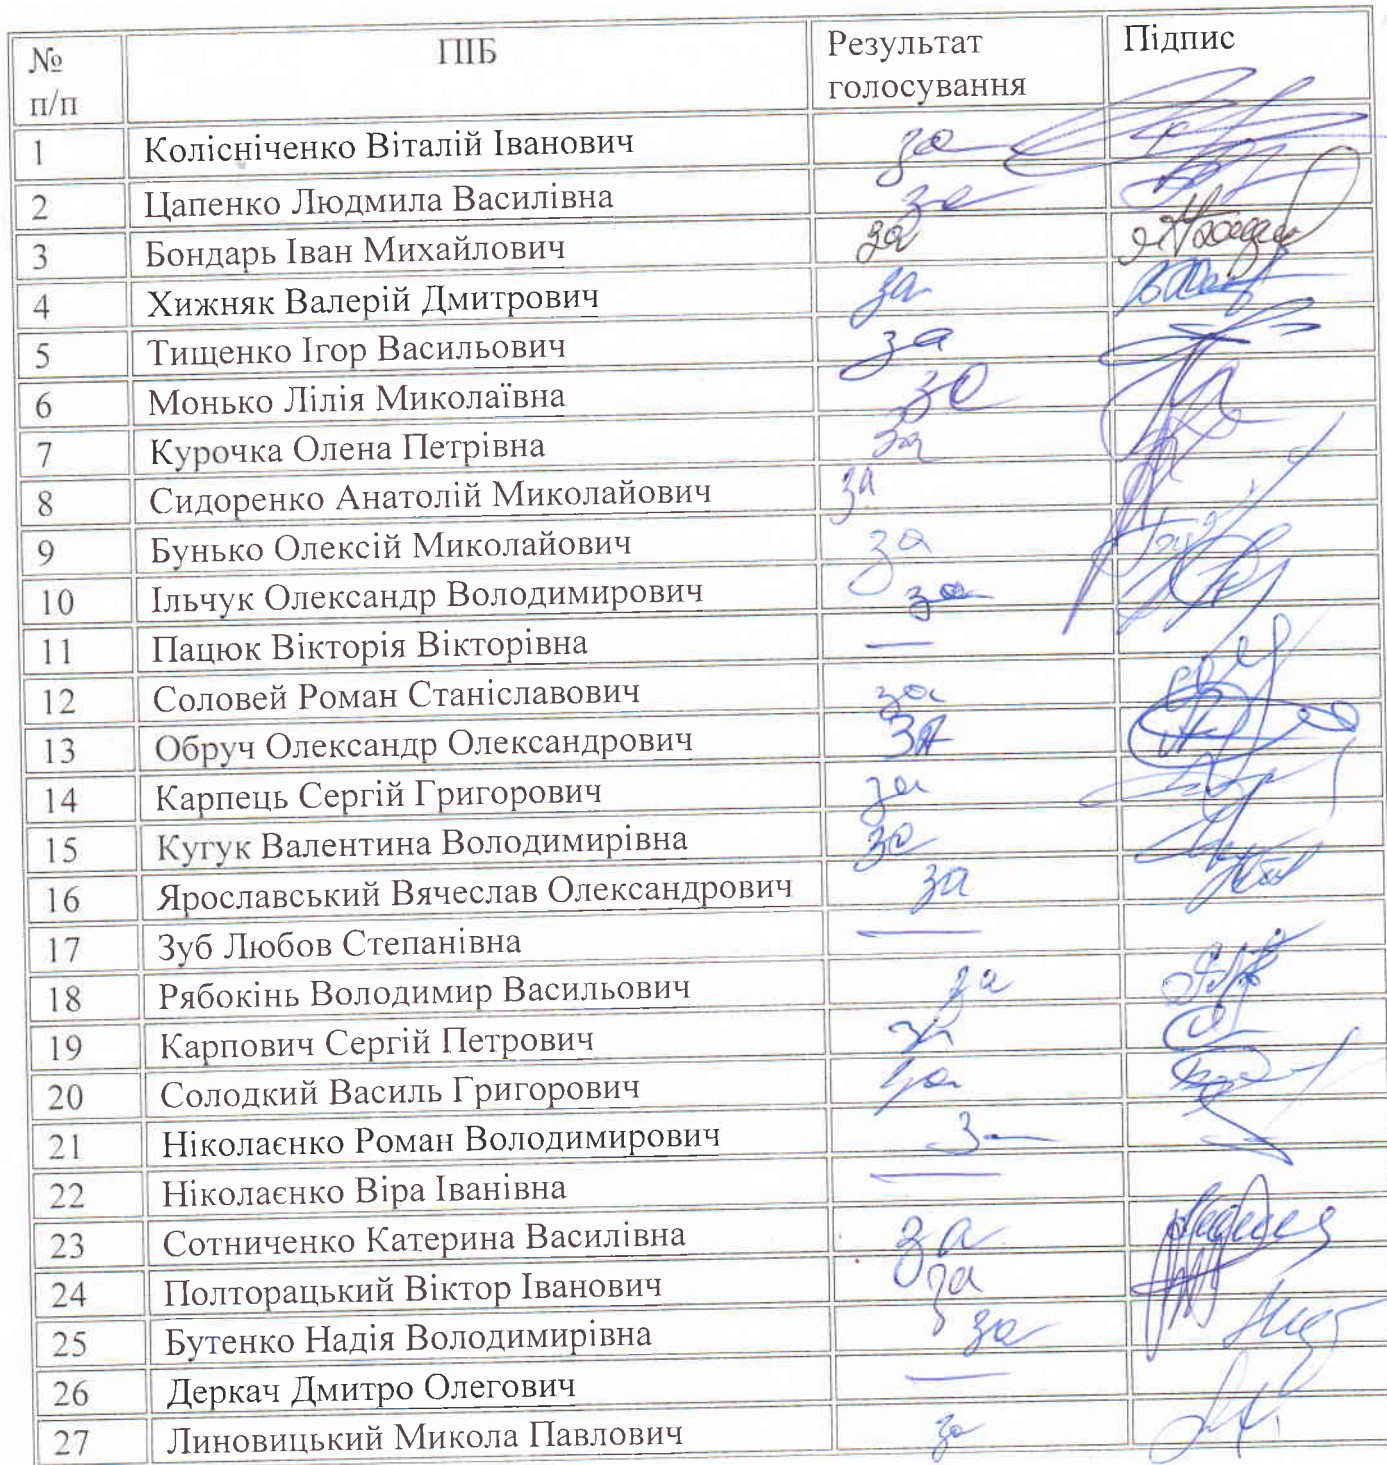 № п/п ПІБ Результат голосування Підпис
1 Колісніченко Віталій Іванович за
2 Цапенко Людмила Василівна за
3 Бондарь Іван Михайлович за
4 Хижняк Валерій Дмитрович за
5 Тищенко Ігор Васильович за
6 Монько Лілія Миколаївна за
7 Курочка Олена Петрівна за
8 Сидоренко Анатолій Миколайович за
9 Бунько Олексій Миколайович за
10 Ільчук Олександр Володимирович за
11 Пацюк Вікторія Вікторівна —
12 Соловей Роман Станіславович за
13 Обруч Олександр Олександрович ЗА
14 Карпець Сергій Григорович за
15 Кугук Валентина Володимирівна за
16 Ярославський Вячеслав Олександрович за
17 Зуб Любов Степанівна —
18 Рябокінь Володимир Васильович за
19 Карпович Сергій Петрович за
20 Солодкий Василь Григорович за
21 Ніколаєнко Роман Володимирович З—
22 Ніколаєнко Віра Іванівна —
23 Сотниченко Катерина Василівна за
24 Полторацький Віктор Іванович за
25 Бутенко Надія Володимирівна за
26 Деркач Дмитро Олегович —
27 Линовицький Микола Павлович за